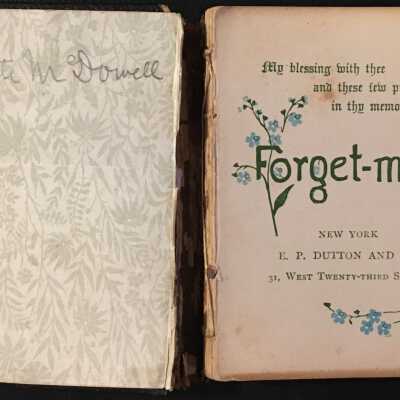 McDowell
My blessing with thee
and these few
in thy
Forget-m
NEW YORK
E. P. DUTTON AND
31, WEST TWENTY-THIRD S